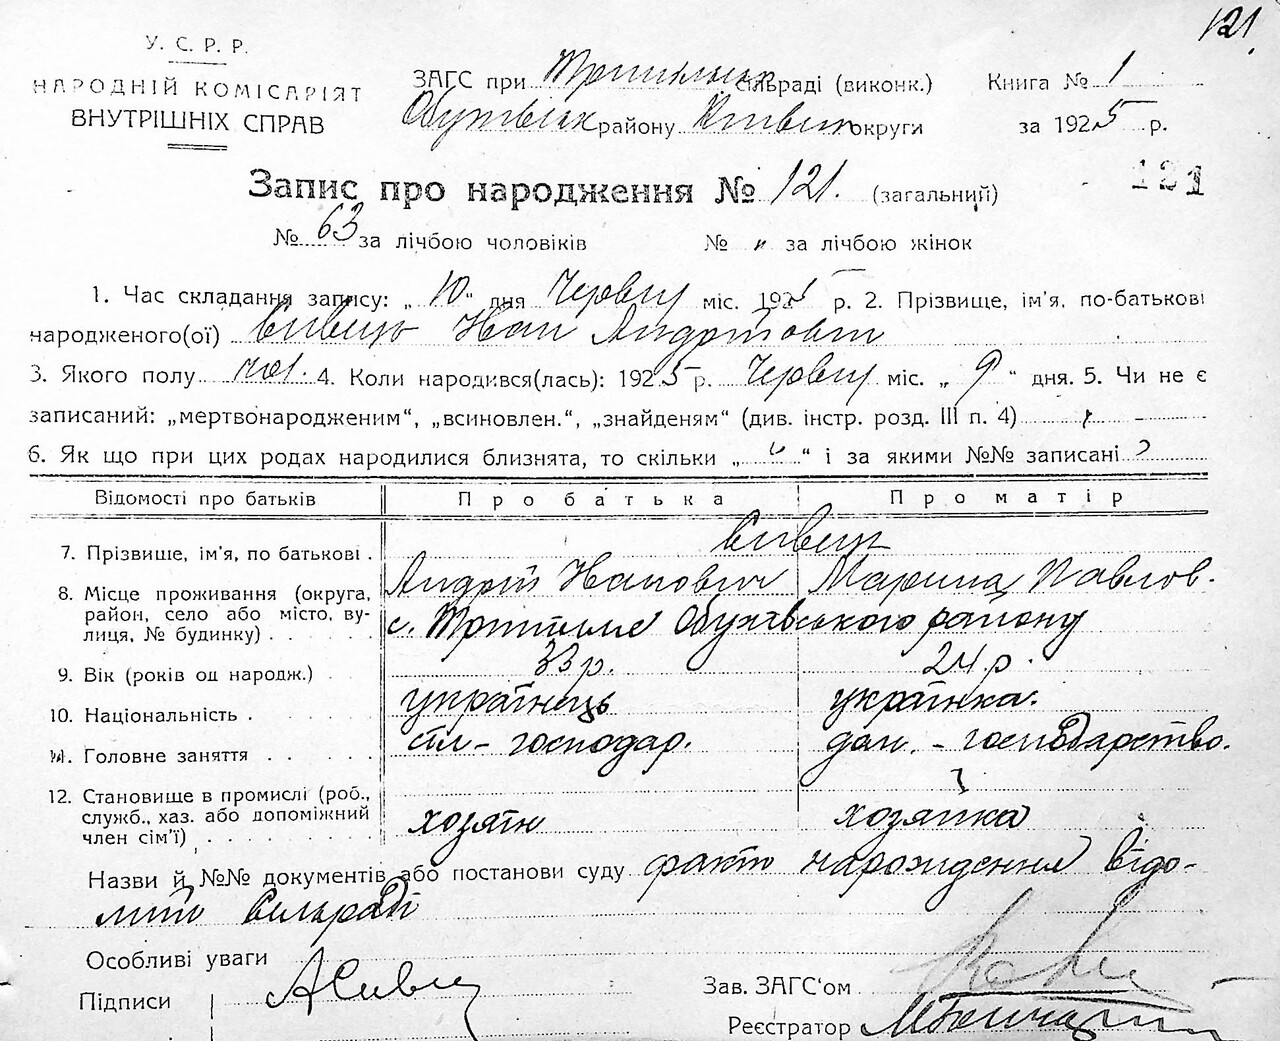 121.
У. С. Р. Р.
НАРОДНІЙ КОМІСАРІЯТ
ВНУТРІШНІХ СПРАВ
ЗАГС при Трипільськ сільраді (виконк.)
Обухівськ району Київськ округи
Книга № 1
за 1925 р.
Запис про народження № 121. (загальний)
121
№ 63 за лічбою чоловіків № „ за лічбою жінок
1. Час складання запису: „10“ дня Червня міс. 1925 р. 2. Прізвище, ім'я, по-батькові
народженого(ої) Сивець Иван Андрійович
3. Якого полу чол. 4. Коли народився(лась): 1925 р. Червня міс. „9“ дня. 5. Чи не є
записаний: „мертвонародженим“, „всиновлен.“, „знайденям“ (див. інстр. розд. III п. 4)
6. Як що при цих родах народилися близнята, то скільки „ “ і за якими №№ записані
Відомості про батьків Про батька Про матір
7. Прізвище, ім'я, по батькові . Сивець
Андрій Иванович Марина Павлов.
8. Місце проживання (округа,
район, село або місто, ву-
лиця, № будинку) . . . . . с. Трипілля Обухівського району
9. Вік (років од народж.) . 33 р. 24 р.
10. Національність . українець українка.
11. Головне заняття . . . . . сіл-господар. дом. - господарство.
12. Становище в промислі (роб.,
служб., хаз. або допоміжний
член сім'ї) . хозяїн хозяйка
Назви й №№ документів або постанови суду факт народження відо-
мий сільраді
Особливі уваги
Підписи АСивец
Зав. ЗАГС'ом
Реєстратор